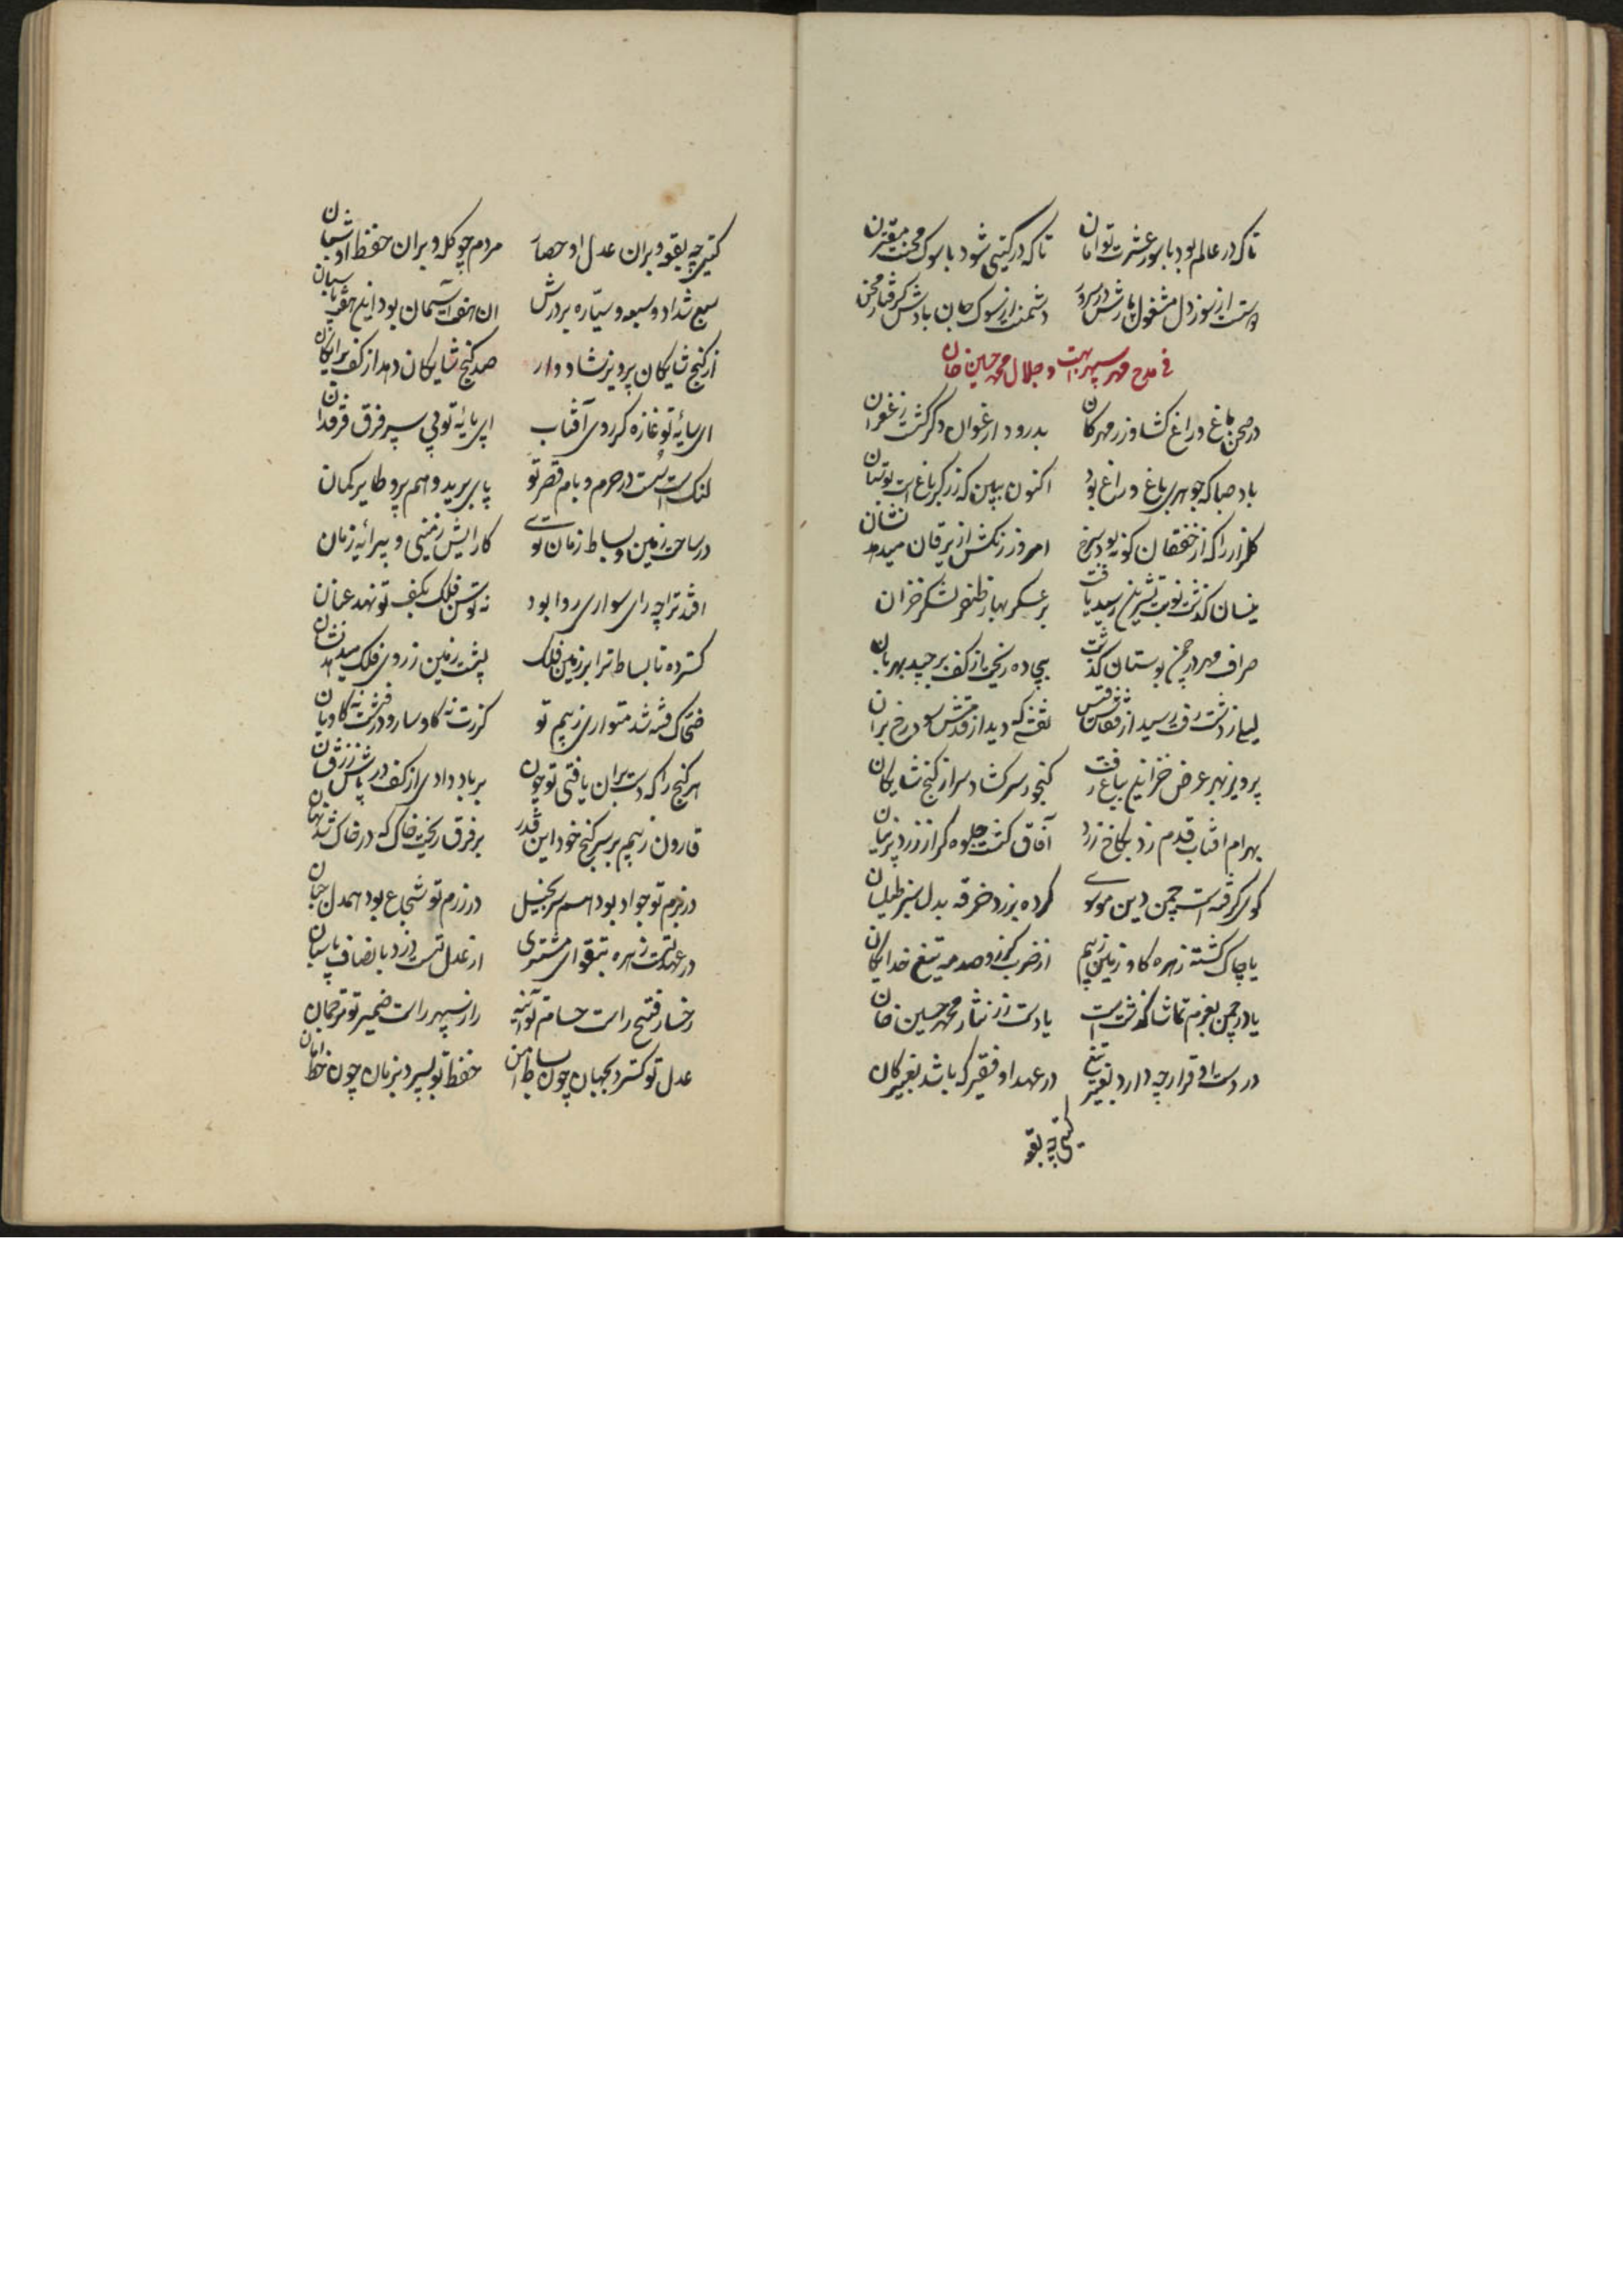 تا که در عالم بود با سور عشرت توامان تا که در کیتی شود با سوک محنت مقترن
دوستت از سوز دل مشغول بادش در سرور دشمنت از سوک جان بادش کرفتار محن
فی مدح مهر سپهر ابهت و جلال محمد حسین خان
در صحن باغ و راغ کشاورز مهرکان بدرود ارغوان و کر کشت زعفران
باد صبا که جوهری باغ و راغ بود اکنون ببین که زرکر باغ است و بوستان
کلزار را که از خفقان کونه بود سرخ امروز رنکش از یرقان میدهد نشان
نیسان کذشت نوبت تشرین رسید یافت بر عسکر بهار ظفر لشکر خزان
صراف مهر در چمن بوستان کذشت بیجاده ریخت از کف برجید بهرمان
لیلی ز دشت رفت رسید از قفاش قیس که دید از قدمش سود رخ بران
پرویز بهر عرض خزاین بباغ رفت کنجور سر کشاد سر از کنج شایکان
بهرام افتاب قدم زد بکاخ زرد آفاق کشت جلوه کر از زرد پرنیان
کوئی کرفته است چمن دین موسوی کرده بزرد خرقه بدل سبز طیلسان
یا چاک کشته زهره کاو زمین ز بیم از ضرب کرز و صدمه تیغ خدایکان
یا در چمن بعزم تماشا کذشته است یا دست زر نثار محمد حسین خان
در دست او قرار چه دارد بغیر تیغ در عهد او فقیر که باشد بغیر کان
کیتی چه بقعه
کیتی چه بقعه و بران عدل او حصار مردم چو کله و بران حفظ او شبان
سبع شداد و سبعه سیاره بر درش ان هفت آسمان بود این هفت پاسبان
از کنج شایکان پرویز شاد وار صد کنج شایکان دهد از کف برایکان
ای سایهٔ تو غازه کر روی آفتاب ای پایهٔ تو پی سپر فرق فرقدان
لنک است در حرم و بام قصر تو پای برید وهم پر و طایر کمان
در ساحت زمین و بساط زمان توئی کارایش زمینی و پیرایهٔ زمان
افتد ترا چه رای سواری روا بود نه توسن فلک بکف تو نهد عنان
کسترده تا بساط ترا بر زمین فلک پشت زمین ز روی فلک میدهد نشان
ضحاک فتنه شد متواری ز بیم تو کرزت نه کاوسار و درفشت نه کاویان
هر کنج را که دست بران یافتی تو چون بر باد دادی از کف در پاش زرفشان
قارون ز بیم بر سر کنج خود این قدر بر فرق ریخت خاک که در خاک شد نهان
در بزم تو جواد بود همسر بخیل در رزم تو شجاع بود همدل جبان
در عهد تست زهره بتقوای مشتری از عدل تست دزد بانصاف پاسبان
رخسار فتح راست حسام تو آئینه راز سپهر راست ضمیر تو ترجمان
عدل تو کسترد بجهان چون بساط امن حفظ تو بسپرد بزمان چون خط امان